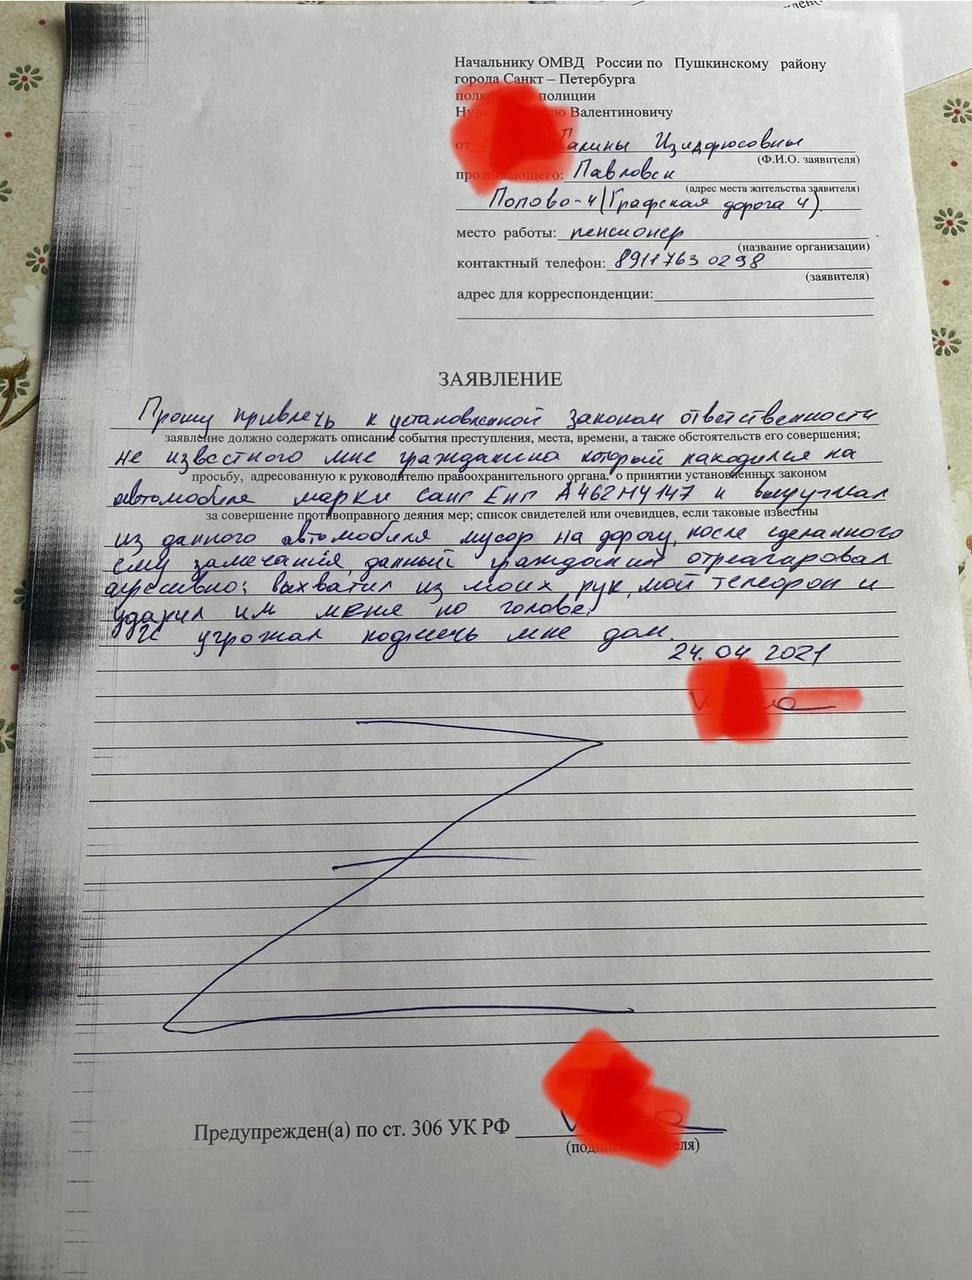 Начальнику ОМВД России по Пушкинскому району
города Санкт – Петербурга
полиции
Валентиновичу
от Галины Изидорюсовны
(Ф.И.О. заявителя)
проживающего: Павловск
(адрес места жительства заявителя)
Попово-4 (Графская дорога 4).
место работы: пенсионер
(название организации)
контактный телефон: 8911763 0298
(заявителя)
адрес для корреспонденции:
ЗАЯВЛЕНИЕ
Прошу привлечь к установленной законом ответственности
заявление должно содержать описание события преступления, места, времени, а также обстоятельств его совершения;
не известного мне гражданина который находился на
просьбу, адресованную к руководителю правоохранительного органа, о принятии установленных законом
автомобиле марки Санг Енг А462МУ147 и выгружал
за совершение противоправного деяния мер; список свидетелей или очевидцев, если таковые известны
из данного автомобиля мусор на дорогу, после сделанного
ему замечания, данный гражданин отреагировал
агресивно: выхватил из моих рук, мой телефон и
ударил им меня по голове.
И угрожал поджечь мне дом.
24.04.2021
Предупрежден(а) по ст. 306 УК РФ